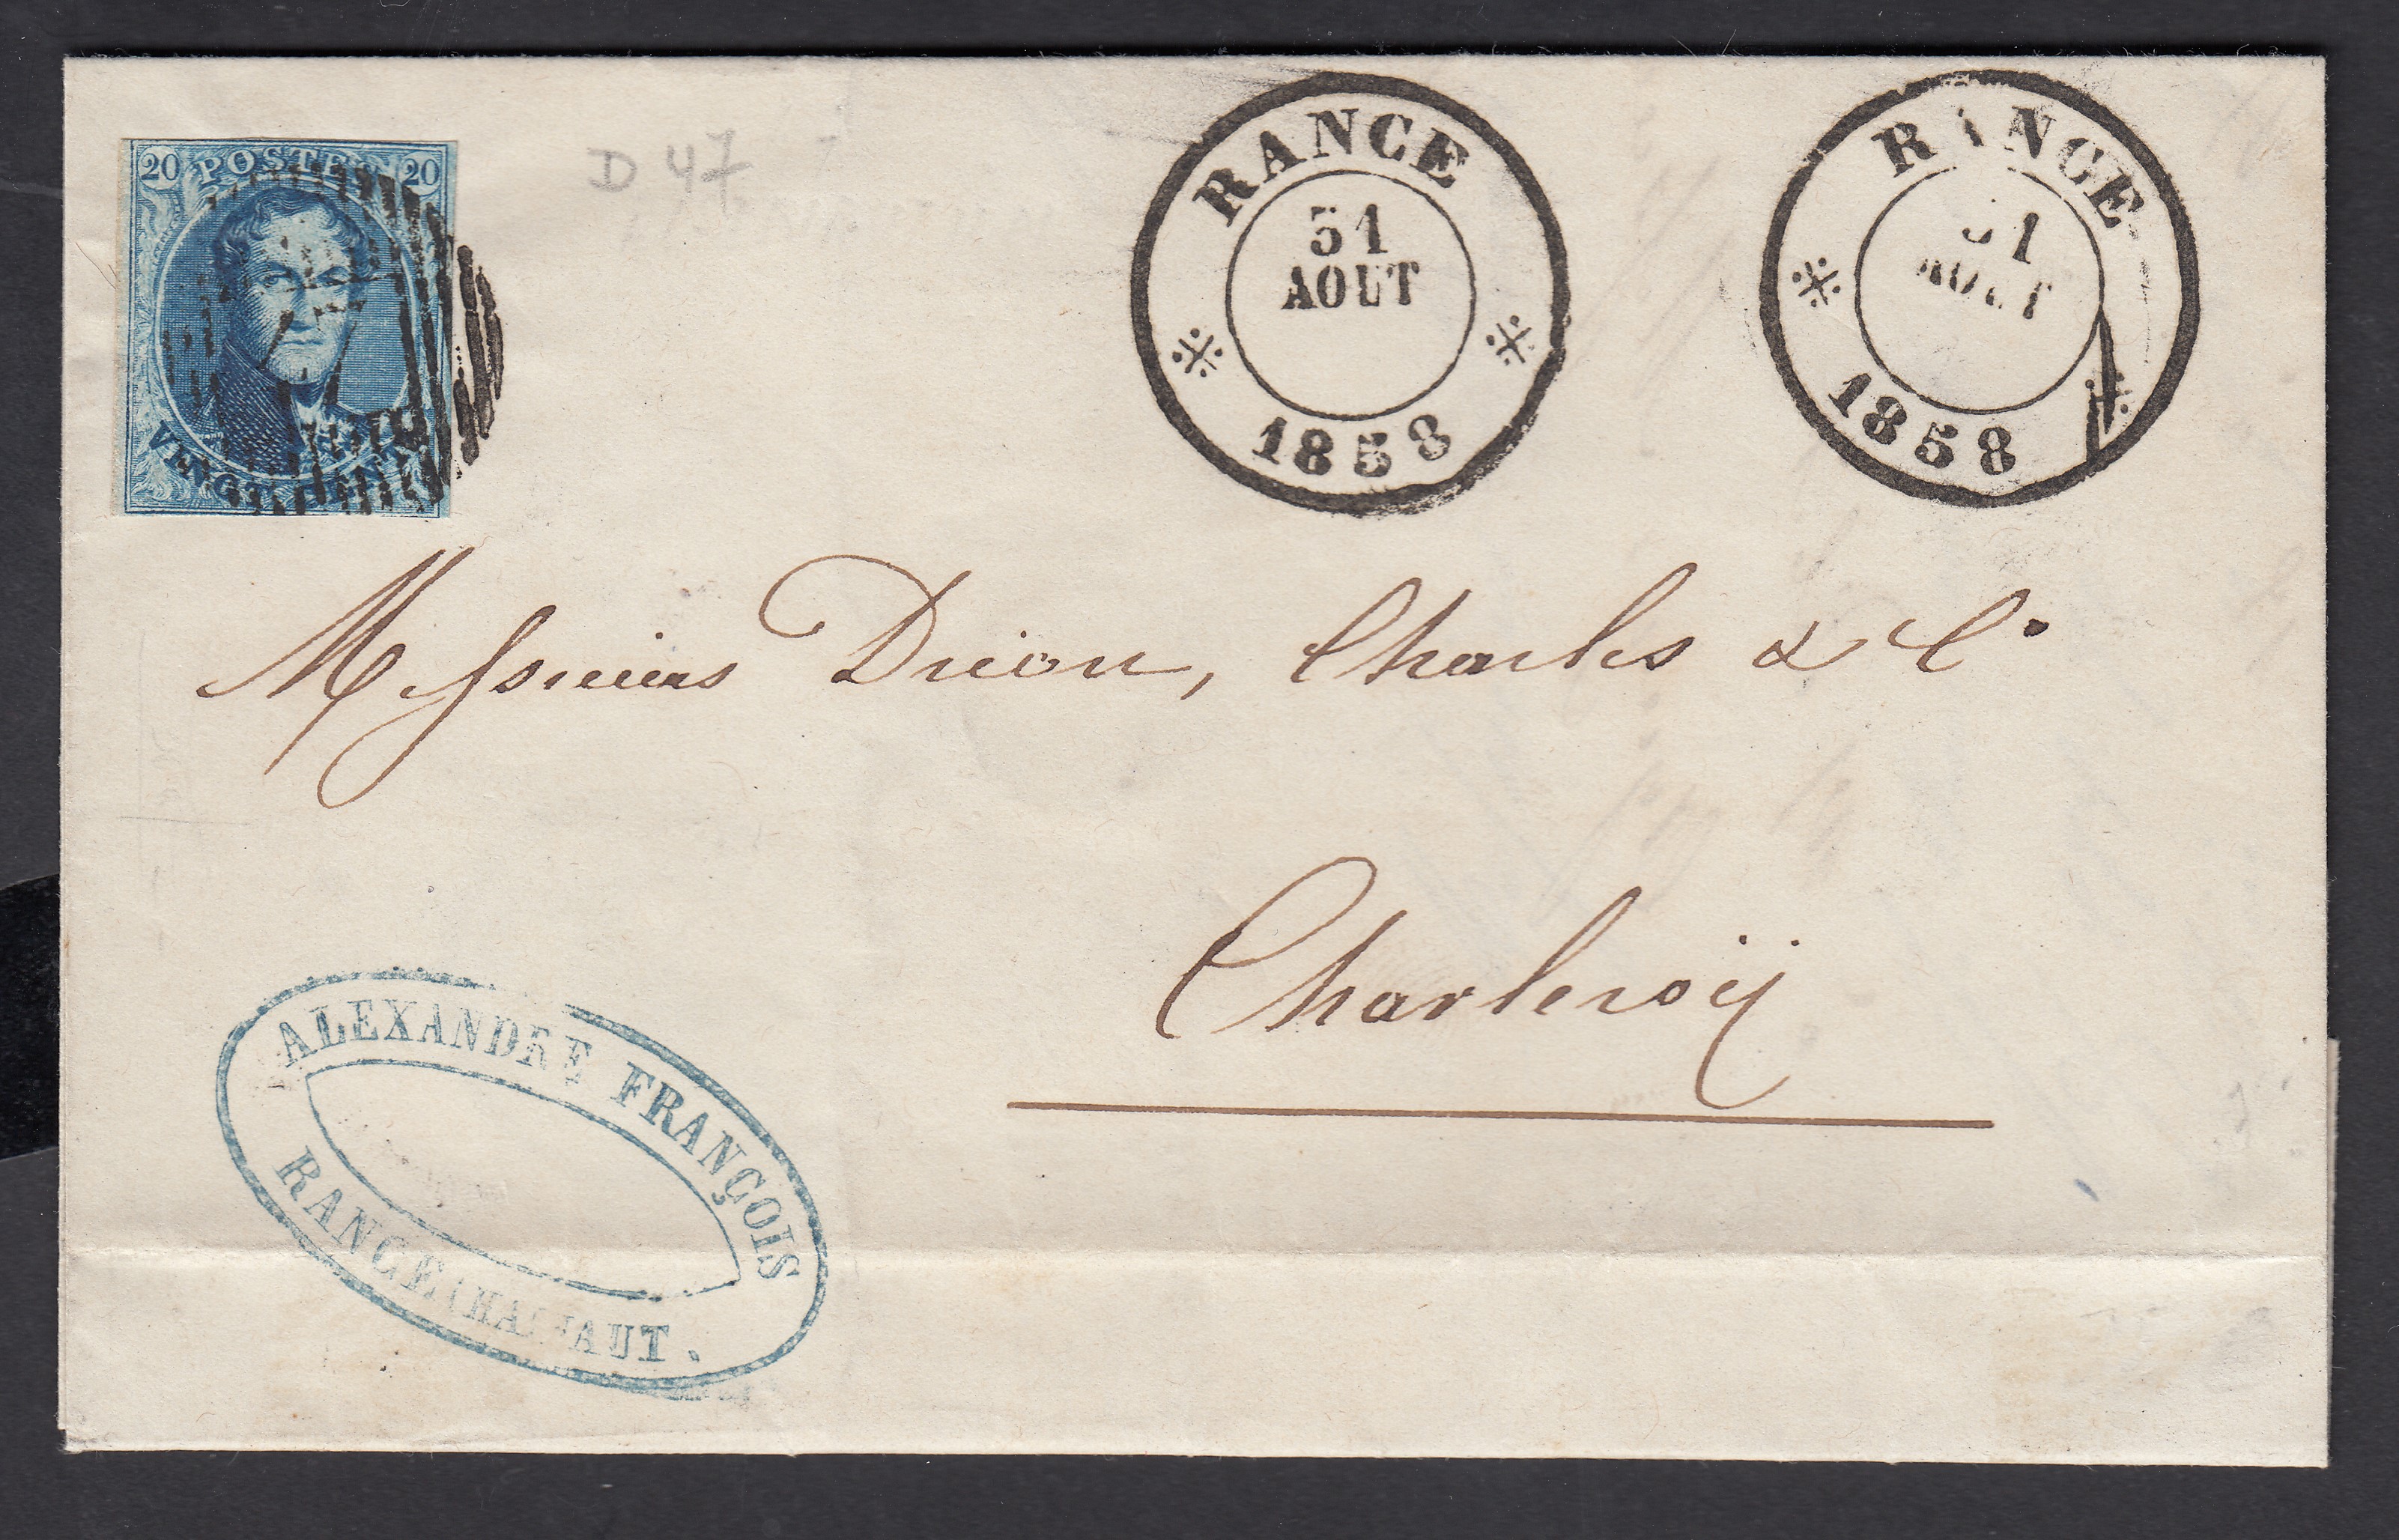 20 POSTES 20
VINGT CENTS
D 47
RANCE
31
AOUT
1858
RANCE
31
AOUT
1858
Messieurs Drion, Charles & Cº
Charleroÿ
ALEXANDRE FRANÇOIS
RANCE (HAINAUT.